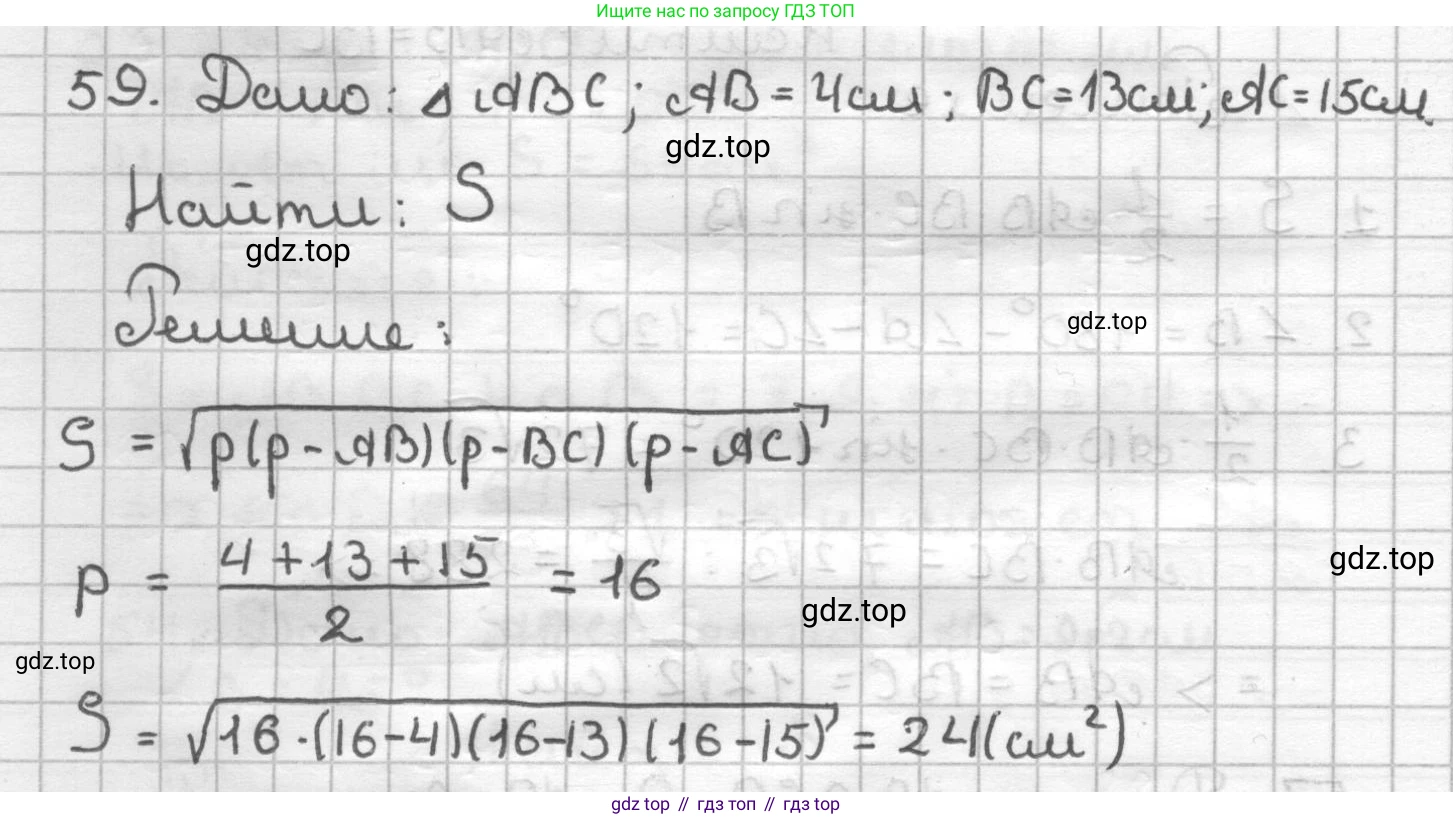 Ищите нас по запросу ГДЗ ТОП
59. Дано: △ ABC; AB = 4см; BC=13см; AC=15см.
gdz.top
Найти: S
gdz.top
Решение:
gdz.top
S = √p(p-AB)(p-BC)(p-AC)
p = (4+13+15)/2 = 16
gdz.top
gdz.top
gdz.top
S = √16·(16-4)(16-13)(16-15) = 24(см²)
gdz top // гдз топ // гдз top